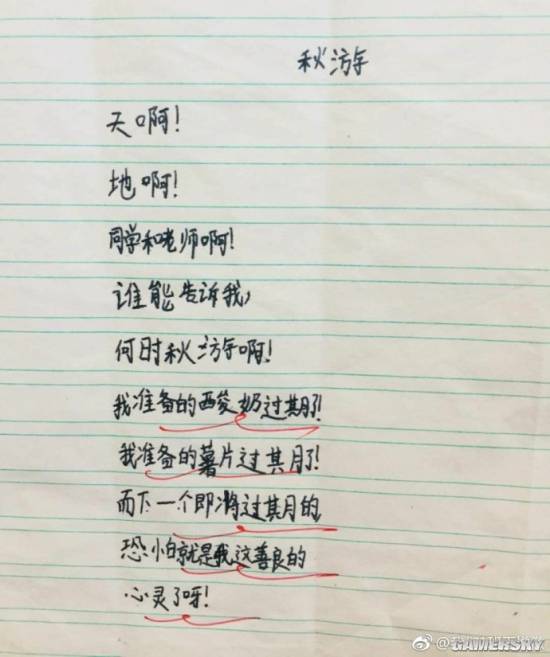 秋游
天啊！
地啊！
同学和老师啊！
谁能告诉我，
何时秋游啊！
我准备的酸奶过期了！
我准备的薯片过期了！
而下一个即将过期的
恐怕就是我这善良的
心灵了呀！
GAMERSKY